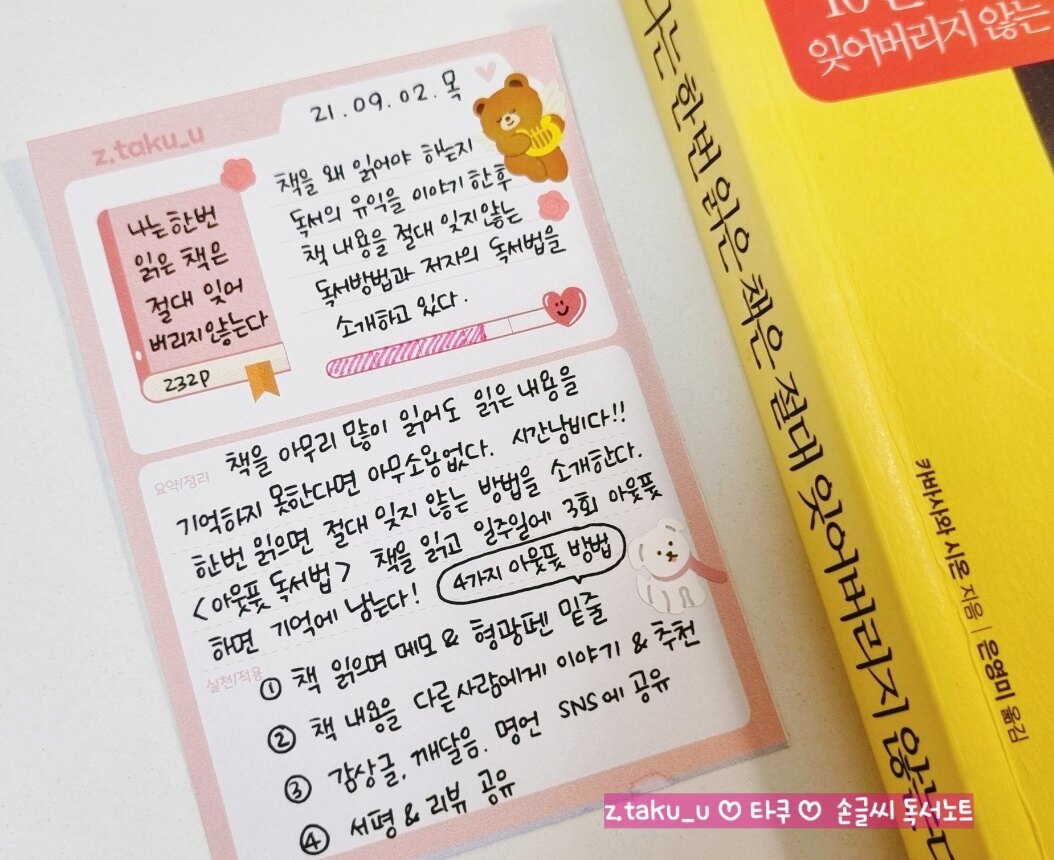 z.taku_u
21.09.02.목
나는 한번
읽은 책은
절대 잊어
버리지 않는다
232P
책을 왜 읽어야 하는지
독서의 유익을 이야기 한후
책 내용을 절대 잊지않는
독서방법과 저자의 독서법을
소개하고 있다.
요약/정리
책을 아무리 많이 읽어도 읽은 내용을
기억하지 못한다면 아무소용없다. 시간낭비다!!
한번 읽으면 절대 잊지 않는 방법을 소개한다.
<아웃풋 독서법> 책을 읽고 일주일에 3회 아웃풋
하면 기억에 남는다! 4가지 아웃풋 방법
실천/적용
① 책 읽으며 메모 & 형광펜 밑줄
② 책 내용을 다른 사람에게 이야기 & 추천
③ 감상글, 깨달음, 명언 SNS에 공유
④ 서평 & 리뷰 공유
잊어버리지 않는
나는 한번 읽은 책은 절대 잊어버리지 않는다
카바사와 시온 지음 | 은영미 옮김
z.taku_u ♡ 타쿠 ♡ 손글씨 독서노트